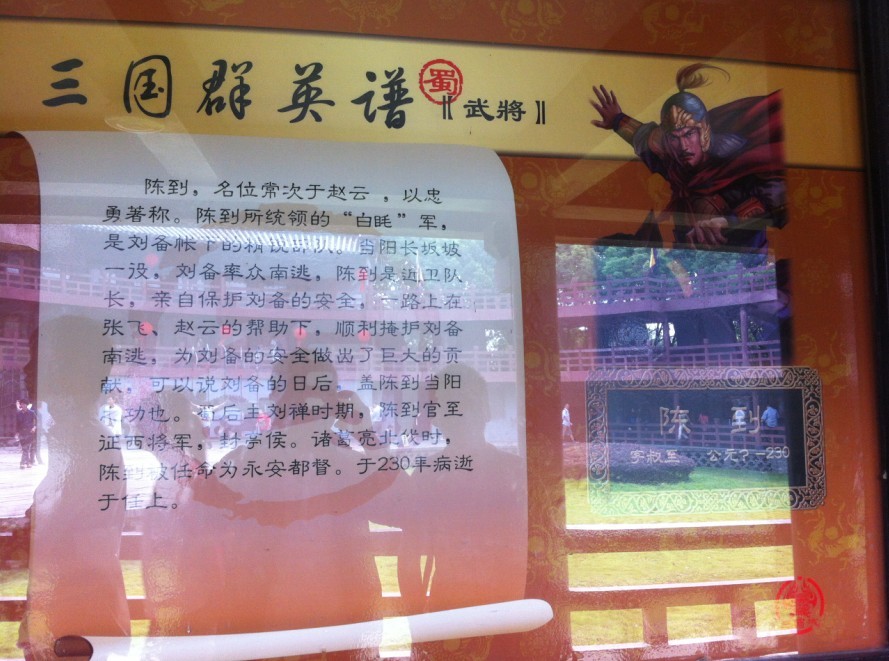 三国群英谱 蜀 〖武將〗
陈到，名位常次于赵云，以忠
勇著称。陈到所统领的“白毦”军，
是刘备帐下的精锐部队。当阳长坂坡
一役，刘备率众南逃，陈到是近卫队
长，亲自保护刘备的安全，一路上在
张飞、赵云的帮助下，顺利掩护刘备
南逃，为刘备的安全做出了巨大的贡
献，可以说刘备的日后，盖陈到当阳
之功也。蜀后主刘禅时期，陈到官至
征西将军，封亭侯。诸葛亮北伐时，
陈到被任命为永安都督。于230年病逝
于任上。
陈 到
字叔至 公元？—230